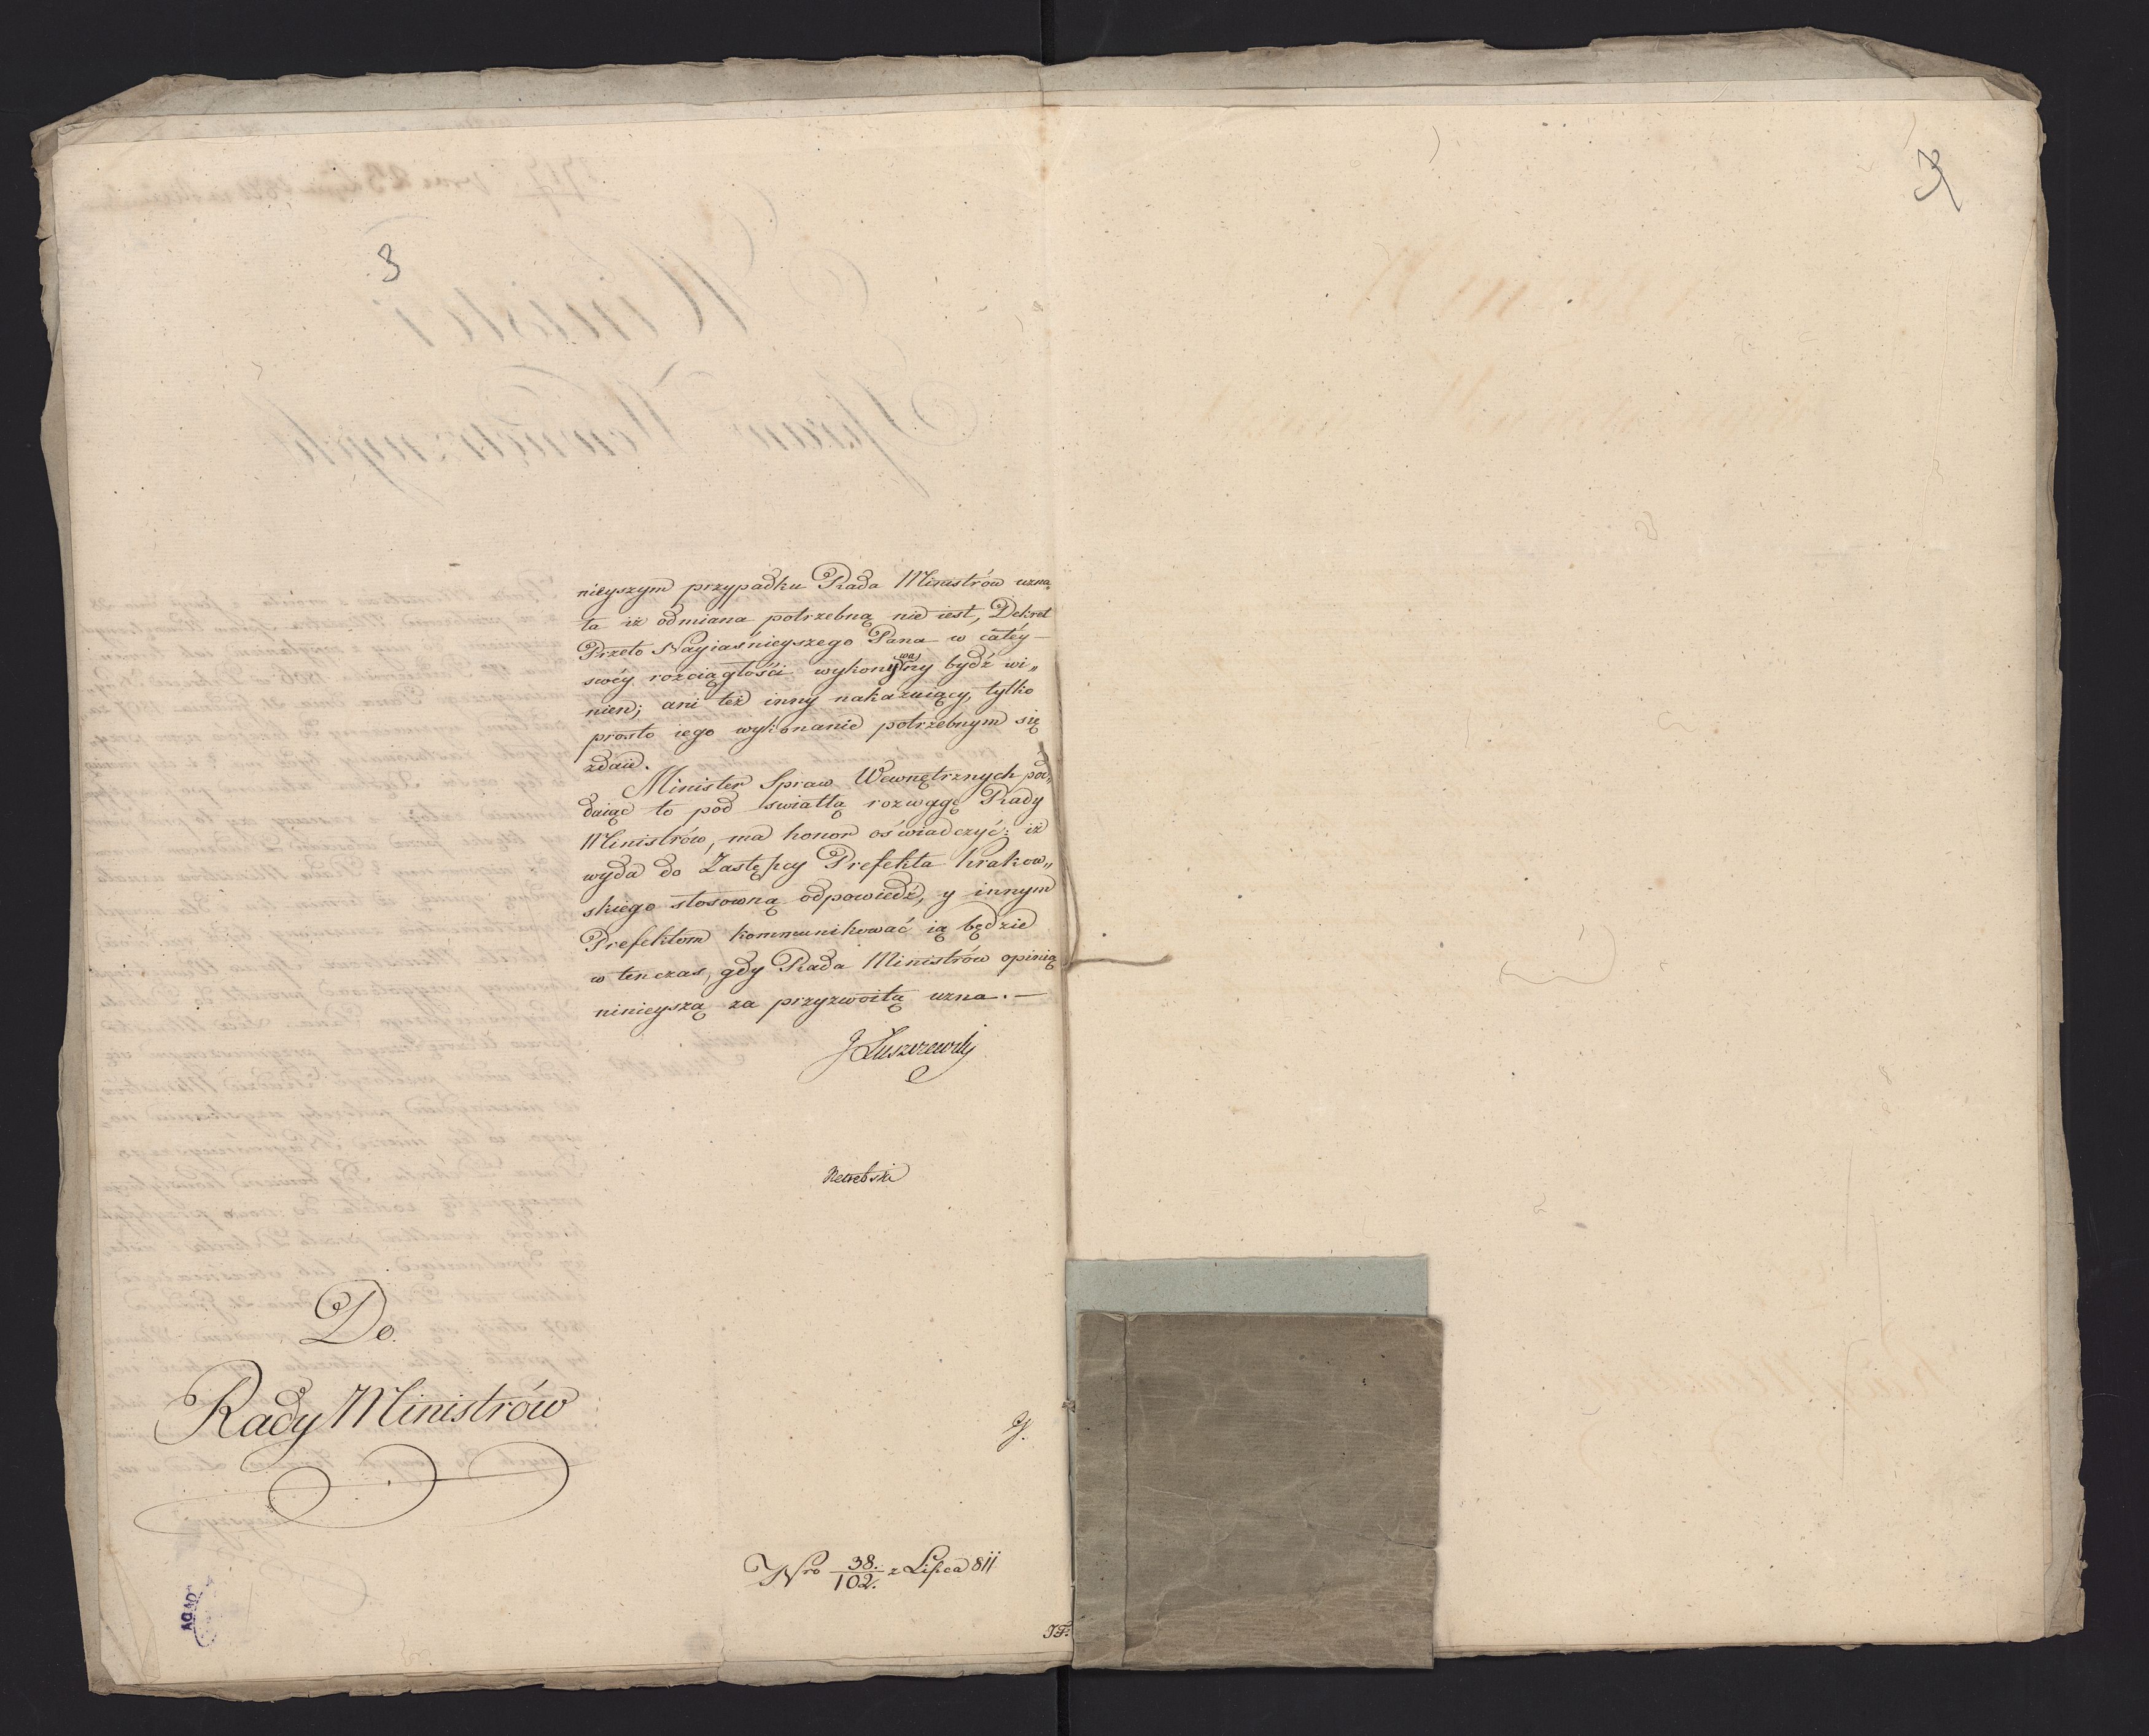 3
3
nieyszym przypadku Rada Ministrów uzna„
ła iż odmiana potrzebną nie iest, Dekret
Przeto Nayiaśnieyszego Pana w całéy
swéy rozciągłości wykonywany bydź wi„
nien; ani też inny nakazuiący tylko
prosto iego wykonanie potrzebnym się
zdaie.
Minister Spraw Wewnętrznych pod„
daiąc to pod światłą rozwagę Rady
Ministrów, ma honor oświadczyć: iż
wyda do Zastępcy Prefekta Krakow„
skiego stosowną odpowiedź, y innym
Prefektom kommunikować ią będzie
w ten czas, gdy Rada Ministrów opinią
ninieyszą za przyzwoitą uzna.—
J Łuszczewsky
Do
Rady Ministrów
Nro 38./102. z Lipca 811
AGAD